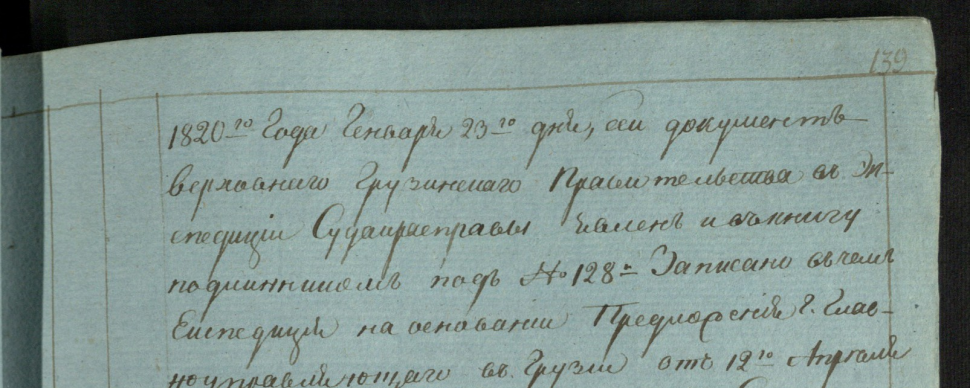 139
1820го Года Генваря 23го дня, сей документъ
верховнаго Грузинскаго Правительства въ Эк-
спедиціи Суда и расправы явленъ и въ книгу
подлинникомъ подъ №128м Записано въ чемъ
Експедиція на основаніи Предложенія Г. Глав-
ноуправляющаго въ Грузіи отъ 12го Апреля